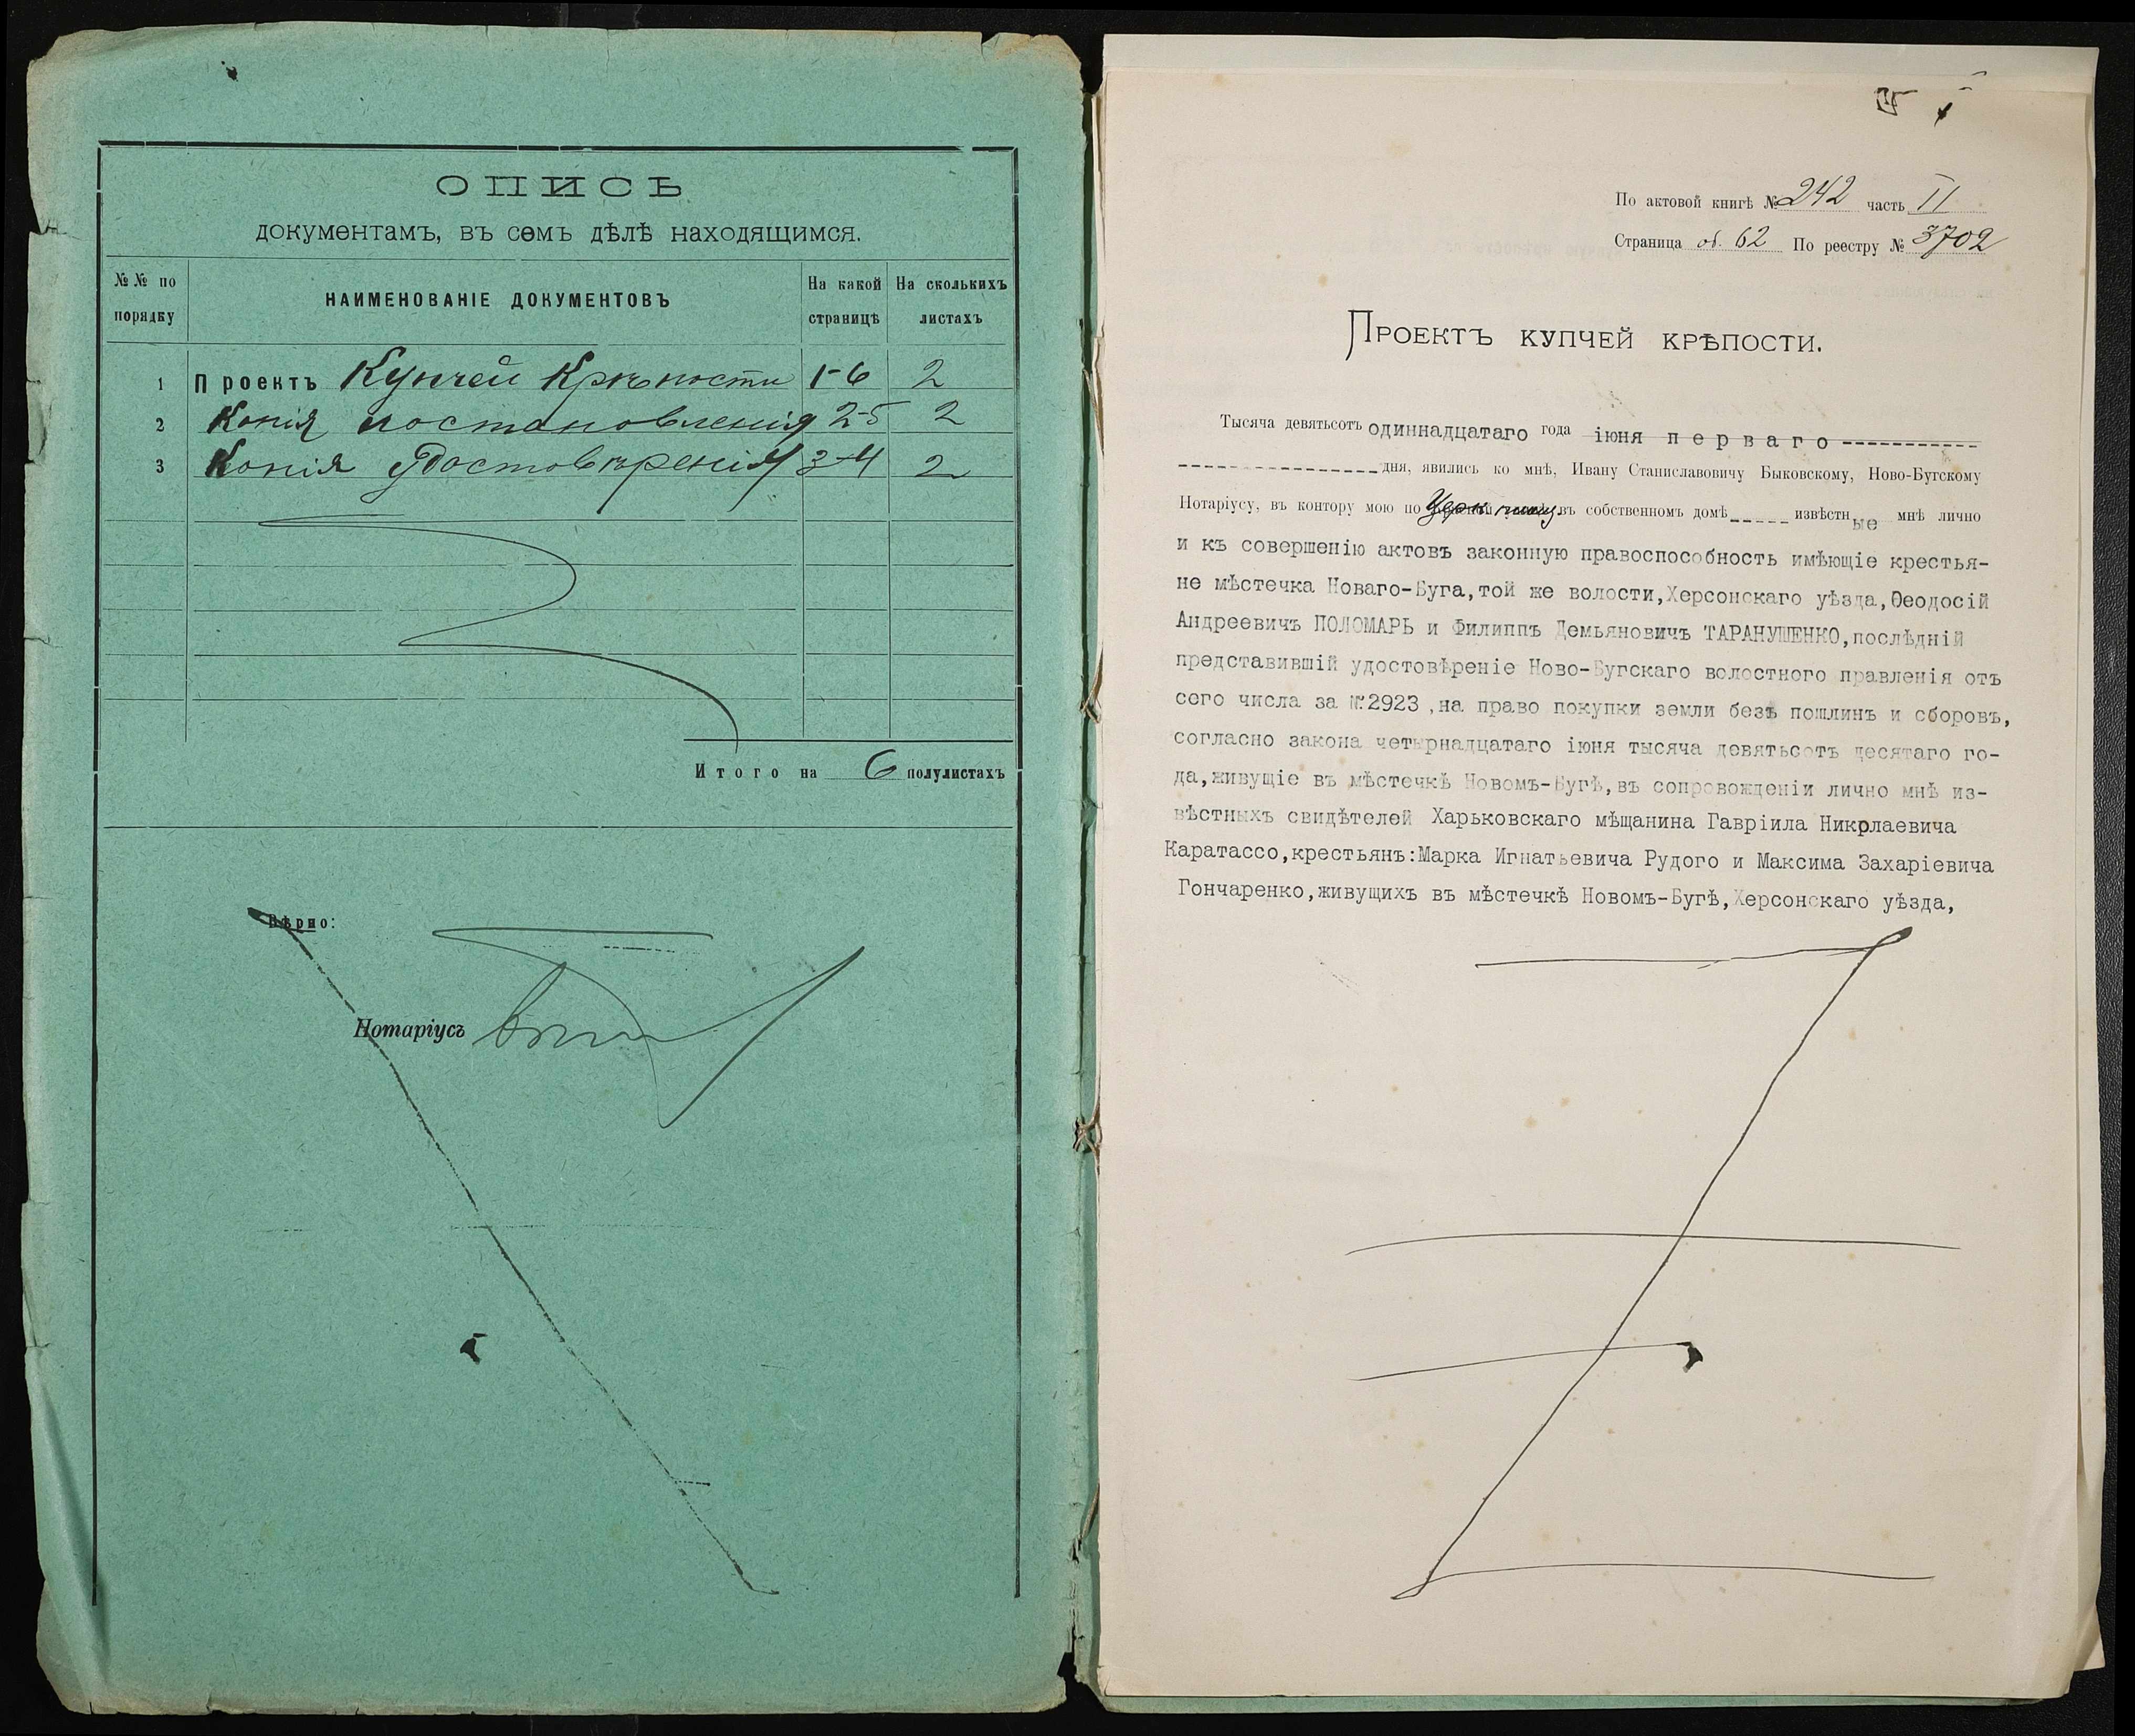 ОПИСЬ
документамъ, въ семъ дѣлѣ находящимся.
№№ по порядку
НАИМЕНОВАНІЕ ДОКУМЕНТОВЪ
На какой страницѣ
На сколькихъ листахъ
1 Проектъ Купчей Крѣпости 1-6 2
2 Копія постановленія 2-5 2
3 Копія Удостовѣренія 3-4 2
Итого на 6 полулистахъ
Вѣрно:
Нотаріусъ
По актовой книгѣ № 242 часть II
Страница об. 62 По реестру № 3702
Проектъ купчей крѣпости.
Тысяча девятьсотъ одиннадцатаго года іюня перваго
дня, явились ко мнѣ, Ивану Станиславовичу Быковскому, Ново-Бугскому
Нотаріусу, въ контору мою по въ собственномъ домѣ извѣстные мнѣ лично
и къ совершенію актовъ законную правоспособность имѣющіе крестья-
не мѣстечка Новаго-Буга,той же волости,Херсонскаго уѣзда,Ѳеодосій
Андреевичъ ПОЛОМАРЬ и Филиппъ Демьяновичъ ТАРАНУШЕНКО,послѣдній
представившій удостовѣреніе Ново-Бугскаго волостного правленія отъ
сего числа за №2923,на право покупки земли безъ пошлинъ и сборовъ,
согласно закона четырнадцатаго іюня тысяча девятьсотъ десятаго го-
да,живущіе въ мѣстечкѣ Новомъ-Бугѣ,въ сопровожденіи лично мнѣ из-
вѣстныхъ свидѣтелей Харьковскаго мѣщанина Гавріила Николаевича
Каратассо,крестьянъ:Марка Игнатьевича Рудого и Максима Захаріевича
Гончаренко,живущихъ въ мѣстечкѣ Новомъ-Бугѣ,Херсонскаго уѣзда,